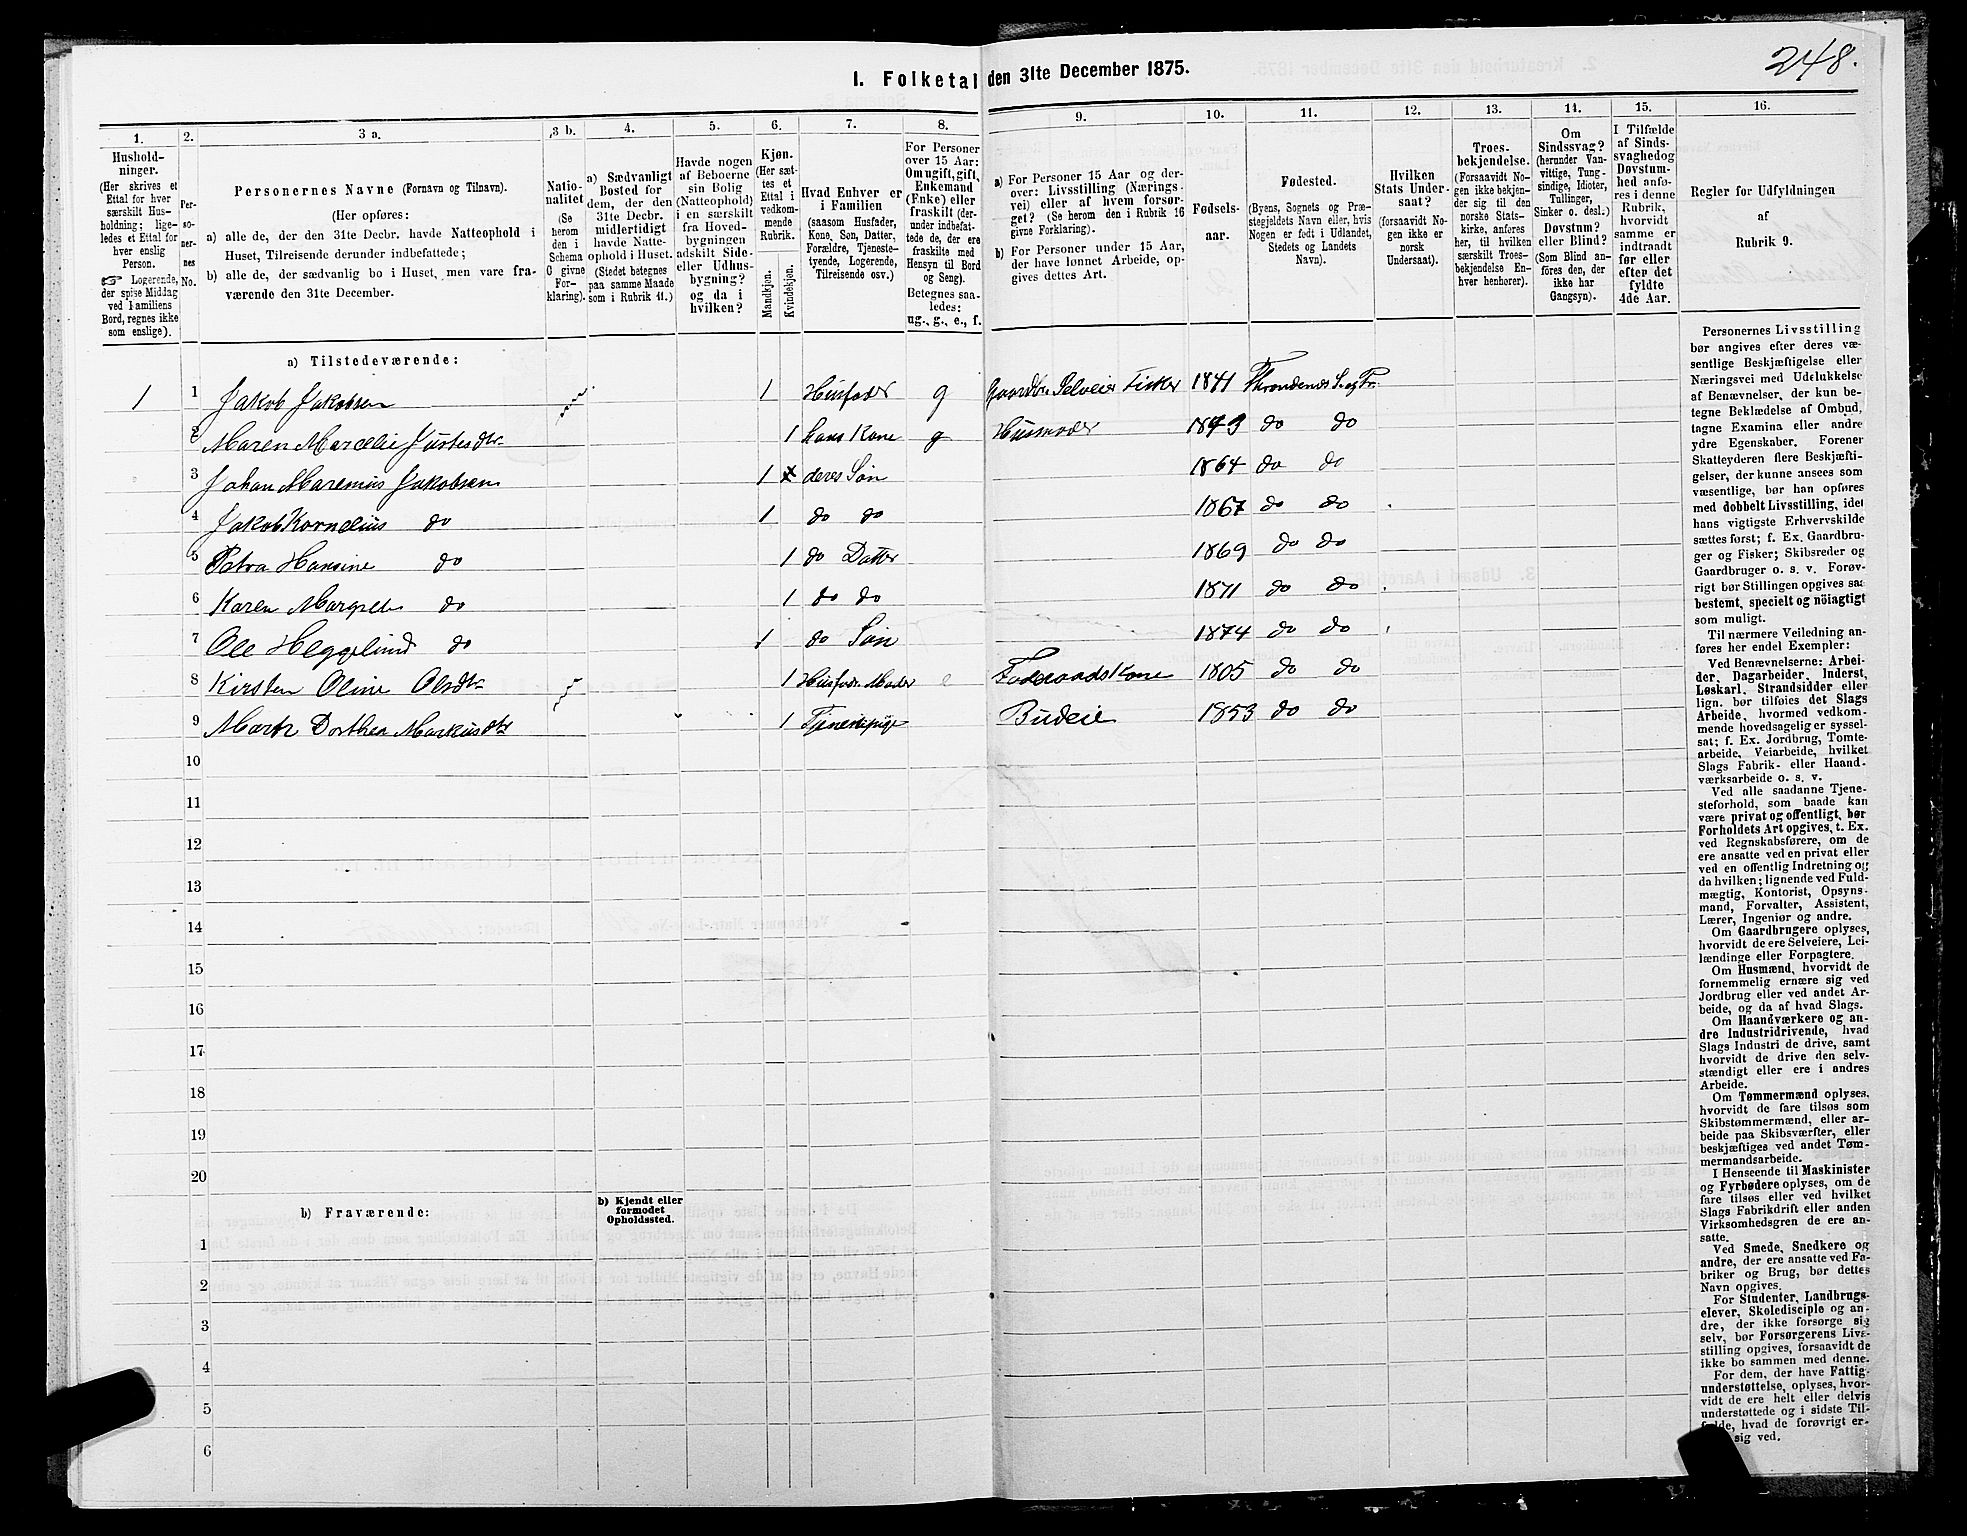 248.
I. Folketal den 31te December 1875.
1. 2. 3 a. 3 b. 4. 5. 6. 7. 8. 9. 10. 11. 12. 13. 14. 15. 16.
Husholdninger.
(Her skrives et
Ettal for hver
særskilt Husholdning; ligeledes
et Ettal for
hver enslig
Person.
Logerende,
der spise Middag
ved Familiens
Bord, regnes ikke
som enslige).
Personernes
No.
Personernes Navne (Fornavn og Tilnavn).
(Her opføres:
a) alle de, der den 31te Decbr. havde Natteophold i
Huset, Tilreisende derunder indbefattede;
b) alle de, der sædvanlig bo i Huset, men vare fraværende
den 31te December.
Nationalitet
(Se
herom
den i
Schema
G givne
Forklaring).
a) Sædvanligt
Bosted for
dem, der den
31te Decbr.
midlertidigt
havde Natteophold
i Huset.
(Stedet betegnes
paa samme Maade
som i Rubrik 11.)
Havde nogen
af Beboerne
sin Bolig
(Natteophold)
i en særskilt
fra Hovedbygningen
adskilt Side-
eller Udhusbygning?
og da i
hvilken?
Kjøn.
(Her sættes
et
Ettal i
vedkommende
Rubrik.
Mandkjøn.
Kvindekjøn.
Hvad Enhver er
i Familien
(saasom Husfader,
Kone, Søn, Datter,
Forældre, Tjenestetyende,
Logerende,
Tilreisende osv.)
For Personer
over 15 Aar:
Om ugift, gift,
Enkemand
(Enke) eller
fraskilt (derunder
indbefattede
de, der ere
fraskilte med
Hensyn til Bord
og Seng).
Betegnes saaledes:
ug., g., e., f.
a) For Personer 15 Aar og derover:
Livsstilling (Næringsvei)
eller af hvem forsørget?
(Se herom den i Rubrik 16
givne Forklaring).
b) For Personer under 15 Aar,
der have lønnet Arbeide, opgives
dettes Art.
Fødselsaar.
Fødested.
(Byens, Sognets og Præstegjeldets
Navn eller, hvis
Nogen er født i Udlandet,
Stedets og Landets
Navn).
Hvilken
Stats Undersaat?
(forsaavidt Nogen
ikke er
norsk
Undersaat).
Troesbekjendelse.
(Forsaavidt Nogen
ikke bekjender
sig til den
norske Statskirke,
anføres
her, til hvilken
særskilt Troesbekjendelse
Enhver
henhører).
Om
Sindssvag?
(herunder Vanvittige,
Tungsindige,
Idioter,
Tullinger,
Sinker o. desl.)
Døvstum?
eller Blind?
(Som Blind anføres
den, der
ikke har
Gangsyn).
I Tilfælde
af Sindssvaghed og
Døvstumhed
anføres
i denne
Rubrik,
hvorvidt
samme er
indtraadt
før eller
efter det
fyldte
4de Aar.
Regler for Udfyldningen
af
Rubrik 9.
a) Tilstedeværende:
1 1 Jakob Jakobsen 1 Husfader g Gaardbr. Selveier Fisker 1841 Throndenes S. og Pr.
2 Maren Marcelie Justesdtr 1 hans Kone g Husmoder 1843 do do
3 Johan Marenius Jakobsen 1 deres Søn 1864 do do
4 Jakob Kornelius do 1 do do 1867 do do
5 Petra Hansine do 1 do Datter 1869 do do
6 Karen Margrete do 1 do do 1871 do do
7 Ole Heggelund do 1 do Søn 1874 do do
8 Kirsten Oline Olsdtr 1 Husfadr. Moder e Føderaadskone 1805 do do
9 Marte Dorthea Markusdtr 1 Tjenestepige Budeie 1853 do do
10
11
12
13
14
15
16
17
18
19
20
b) Fraværende:
b) Kjendt eller
formodet
Opholdssted.
1
2
3
4
5
6
Personernes Livsstilling
bør angives efter deres væsentlige
Beskjæftigelse eller
Næringsvei med Udelukkelse
af Benævnelser, der kun betegne
Beklædelse af Ombud,
tagne Examina eller andre
ydre Egenskaber. Forener
Skatteyderen flere Beskjæftigelser,
der kunne ansees som
væsentlige, bør han opføres
med dobbelt Livsstilling, idet
hans vigtigste Erhvervskilde
sættes først; f. Ex. Gaardbruger
og Fisker; Skibsreder og
Gaardbruger o. s. v. Forøvrigt
bør Stillingen opgives saa
bestemt, specielt og nöiagtigt
som muligt.
Til nærmere Veiledning anføres
her endel Exempler:
Ved Benævnelserne: Arbeider,
Dagarbeider, Inderst,
Løskarl, Strandsidder eller
lign. bør tilføies det Slags
Arbeide, hvormed vedkommende
hovedsagelig er sysselsat;
f. Ex. Jordbrug, Tomtearbeide,
Veiarbeide, hvilket
Slags Fabrik- eller Haandværksarbeide
o. s. v.
Ved alle saadanne Tjenesteforhold,
som baade kan
være privat og offentligt, bør
Forholdets Art opgives, t. Ex.
ved Regnskabsførere, om de
ere ansatte ved en privat eller
ved en offentlig Indretning og
da hvilken; lignende ved Fuldmægtig,
Kontorist, Opsynsmand,
Forvalter, Assistent,
Lærer, Ingeniør og andre.
Om Gaardbrugere oplyses,
hvorvidt de ere Selveiere, Leilændinge
eller Forpagtere.
Om Husmænd, hvorvidt de
fornemmelig ernære sig ved
Jordbrug eller ved andet Arbeide,
og da af hvad Slags.
Om Haandværkere og andre
Industridrivende, hvad
Slags Industri de drive, samt
hvorvidt de drive den selvstændigt
eller ere i andres
Arbeide.
Om Tømmermænd oplyses,
hvorvidt de fare tilsøs som
Skibstømmermænd, eller arbeide
paa Skibsværfter, eller
beskjæftiges ved andet Tømmermandsarbeide.
I Henseende til Maskinister
og Fyrbødere oplyses, om de
fare tilsøs eller ved hvilket
Slags Fabrikdrift eller anden
Virksomhedsgren de ere ansatte.
Ved Smede, Snedkere og
andre, der ere ansatte ved Fabriker
og Brug, bør dettes
Navn opgives.
For Studenter, Landbrugselever,
Skoledisciple og andre,
der ikke forsørge sig
selv, bør Forsørgerens Livsstilling
opgives, forsaavidt de
ikke bo sammen med denne.
For dem, der have Fattigunderstøttelse,
oplyses, hvorvidt
de ere helt eller delvis
understøttede og i sidste Tilfælde,
hvad de forøvrigt ernære
sig ved.